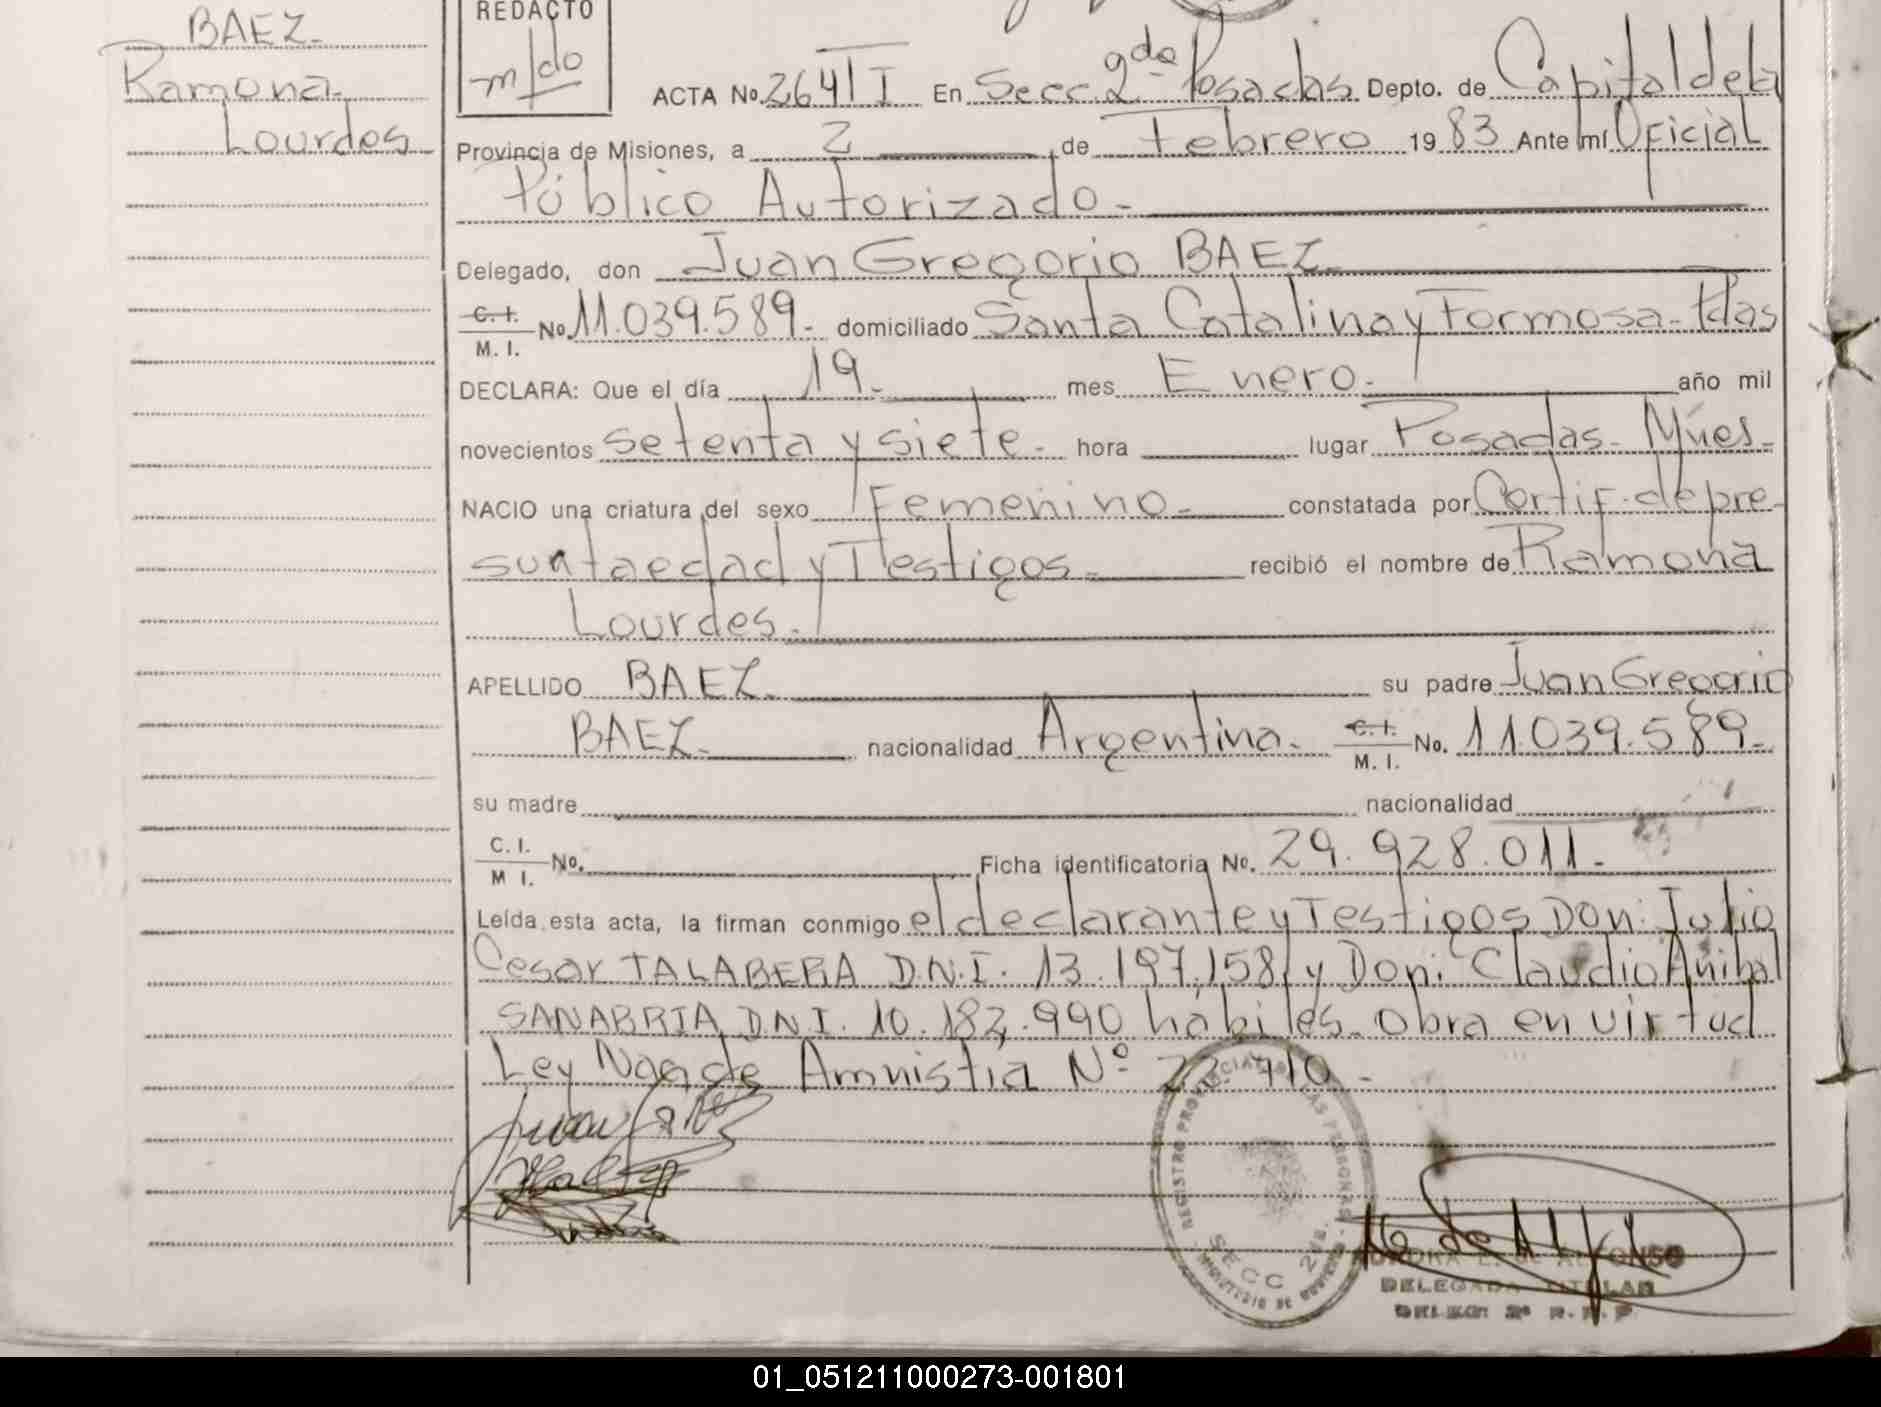 BAEZ.
Ramona
Lourdes
REDACTO
m/do
ACTA No. 264 T I En Secc. 2da Posadas Depto. de Capital de la
Provincia de Misiones, a 2 de Febrero 1983 Ante mí Oficial
Público Autorizado.-
Delegado, don Juan Gregorio BAEZ.
C. I. / M. I. No. 11.039.589.- domiciliado Santa Catalina y Formosa- Pdas
DECLARA: Que el día 19.- mes Enero.- año mil
novecientos setenta y siete.- hora lugar Posadas- Mnes.-
NACIO una criatura del sexo Femenino.- constatada por Certif. de pre-
sunta edad y Testigos.- recibió el nombre de Ramona
Lourdes.-
APELLIDO BAEZ.- su padre Juan Gregorio
BAEZ.- nacionalidad Argentina.- C. I. / M. I. No. 11.039.589.-
su madre nacionalidad
C. I. / M I. No. Ficha identificatoria No. 29.928.011.-
Leída esta acta, la firman conmigo el declarante y Testigos Don: Julio
Cesar TALABERA D.N.I. 13.197.158 y Don: Claudio Anibal
SANABRIA D.N.I. 10.182.990 hábiles. Obra en virtud
Ley Nac. de Amnistia Nº 22.410.-
REGISTRO PROVINCIAL DE LAS PERSONAS
SECC 2da.
MINISTERIO DE GOBIERNO
AURORA E. de ALFONSO
DELEGADA TITULAR
DELEG. 2ª R. P. P
01_051211000273-001801